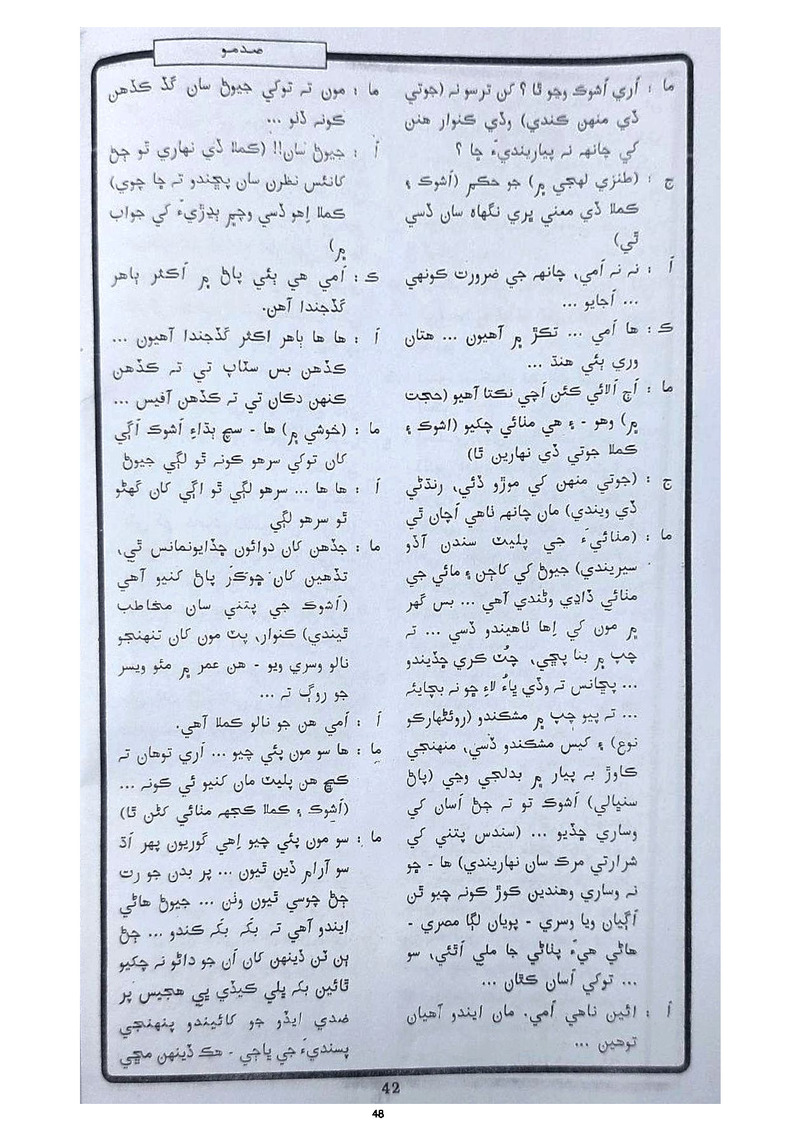 صدمو
ما : اَري اَشوڪ وڃو ٿا ؟ کن ترسو نہ (جوتي
ڏي منهن ڪندي) وڏي ڪنوار هنن
کي چانهہ نہ پياريندي۽ ڇا ؟
ج : (طنزي لهجي ۾) جو حڪم (اَشوڪ ۽
ڪملا ڏي معني ڀري نگهاہ سان ڏسي
ٿي)
اَ : نہ نہ اَمي، چانهہ جي ضرورت ڪونهي
... اَجايو ...
ڪ : ها اَمي ... تڪڙ ۾ آهيون ... هتان
وري ٻئي هنڌ ...
ما : اَڄ اَلائي ڪئن اَچي نڪتا آهيو (حجت
۾) وهو - ۽ هي مٺائي چکيو (اشوڪ ۽
ڪملا جوتي ڏي نهارين ٿا)
ج : (جوتي منهن کي موڙو ڏئي، رنڌڻي
ڏي ويندي) مان چانهہ ٺاهي اَچان ٿي
ما : (مٺائي۽َ جي پليٽ سندن آڏو
سيريندي) جيوڻ کي کاڄن ۽ مائي جي
مٺائي ڏاڍي وڻندي آهي ... بس گهر
۾ مون کي اِها ٺاهيندو ڏسي ... تہ
چپ ۾ بنا پڇي، چَٽ ڪري ڇڏيندو
... پڇانس تہ وڏي ڀاءُ لاءِ ڇو نہ بچايئہ
... تہ پيو چپ ۾ مشڪندو (روئڻهارڪو
نوع) ۽ کيس مشڪندو ڏسي، منهنجي
ڪاوڙ بہ پيار ۾ بدلجي وڃي (پاڻ
سنڀالي) اَشوڪ تو تہ ڄڻ اَسان کي
وساري ڇڏيو ... (سندس پتني کي
شرارتي مرڪ سان نهاريندي) ها - ڇو
نہ وساري وهندين ڪوڙ ڪونہ چيو ٿن
اَڳيان ويا وسري - پويان لڳا مصري -
هاڻي هي۽َ پٺاڻي جا ملي اَٿئي، سو
... توکي اَسان ڪٿان ...
اَ : ائين ناهي اَمي. مان ايندو آهيان
توهين ...
ما : مون تہ توکي جيوڻ سان گڏ ڪڏهن
ڪونہ ڏٺو ...
اَ : جيوڻ سان!! (ڪملا ڏي نهاري ٿو ڄڻ
کانئس نظرن سان پڇندو تہ ڇا چوي)
ڪملا اِهو ڏسي وچ۾ ٻڌڙي۽َ کي جواب
۾)
ڪ : اَمي هي ٻئي پاڻ ۾ اَڪثر ٻاهر
گڏجندا آهن.
اَ : ها ها ٻاهر اڪثر گڏجندا آهيون ...
ڪڏهن بس سٽاپ تي تہ ڪڏهن
ڪنهن دڪان تي تہ ڪڏهن آفيس ...
ما : (خوشي ۾) ها - سچ ٻڌاءِ اَشوڪ اَڳي
کان توکي سرهو ڪونہ ٿو لڳي جيوڻ
اَ : ها ها ... سرهو لڳي ٿو اڳي کان گهڻو
ٿو سرهو لڳي
ما : جڏهن کان دوائون ڇڏايونمانس ٿي،
تڏهين کان ڇوڪر پاڻ کنيو آهي
(اَشوڪ جي پتني سان مخاطب
ٿيندي) ڪنوار، پٽ مون کان تنهنجو
نالو وسري ويو - هن عمر ۾ مئو ويسر
جو روڳ تہ ...
اَ : اَمي هن جو نالو ڪملا آهي.
ما : ها سو مون پئي چيو ... اَري توهان تہ
ڪڇ هن پليٽ مان کنيو ئي ڪونہ ...
(اَشوڪ ۽ ڪملا ڪجهہ مٺائي کڻن ٿا)
ما : سو مون پئي چيو اِهي گوريون پهر اَڌ
سو آرام ڏين ٿيون ... پر بدن جو رت
ڄڻ چوسي ٿيون وٺن ... جيوڻ هاڻي
ايندو آهي تہ بکہ بکہ ڪندو ... ڄڻ
ٻن ٽن ڏينهن کان اَن جو داڻو نہ چکيو
ٿائين بکہ ڀلي ڪيڏي بہ هجيس پر
ضدي ايڏو جو کائيندو پنهنجي
پسندي۽َ جي ڀاڄي - هڪ ڏينهن مڇي
42
48